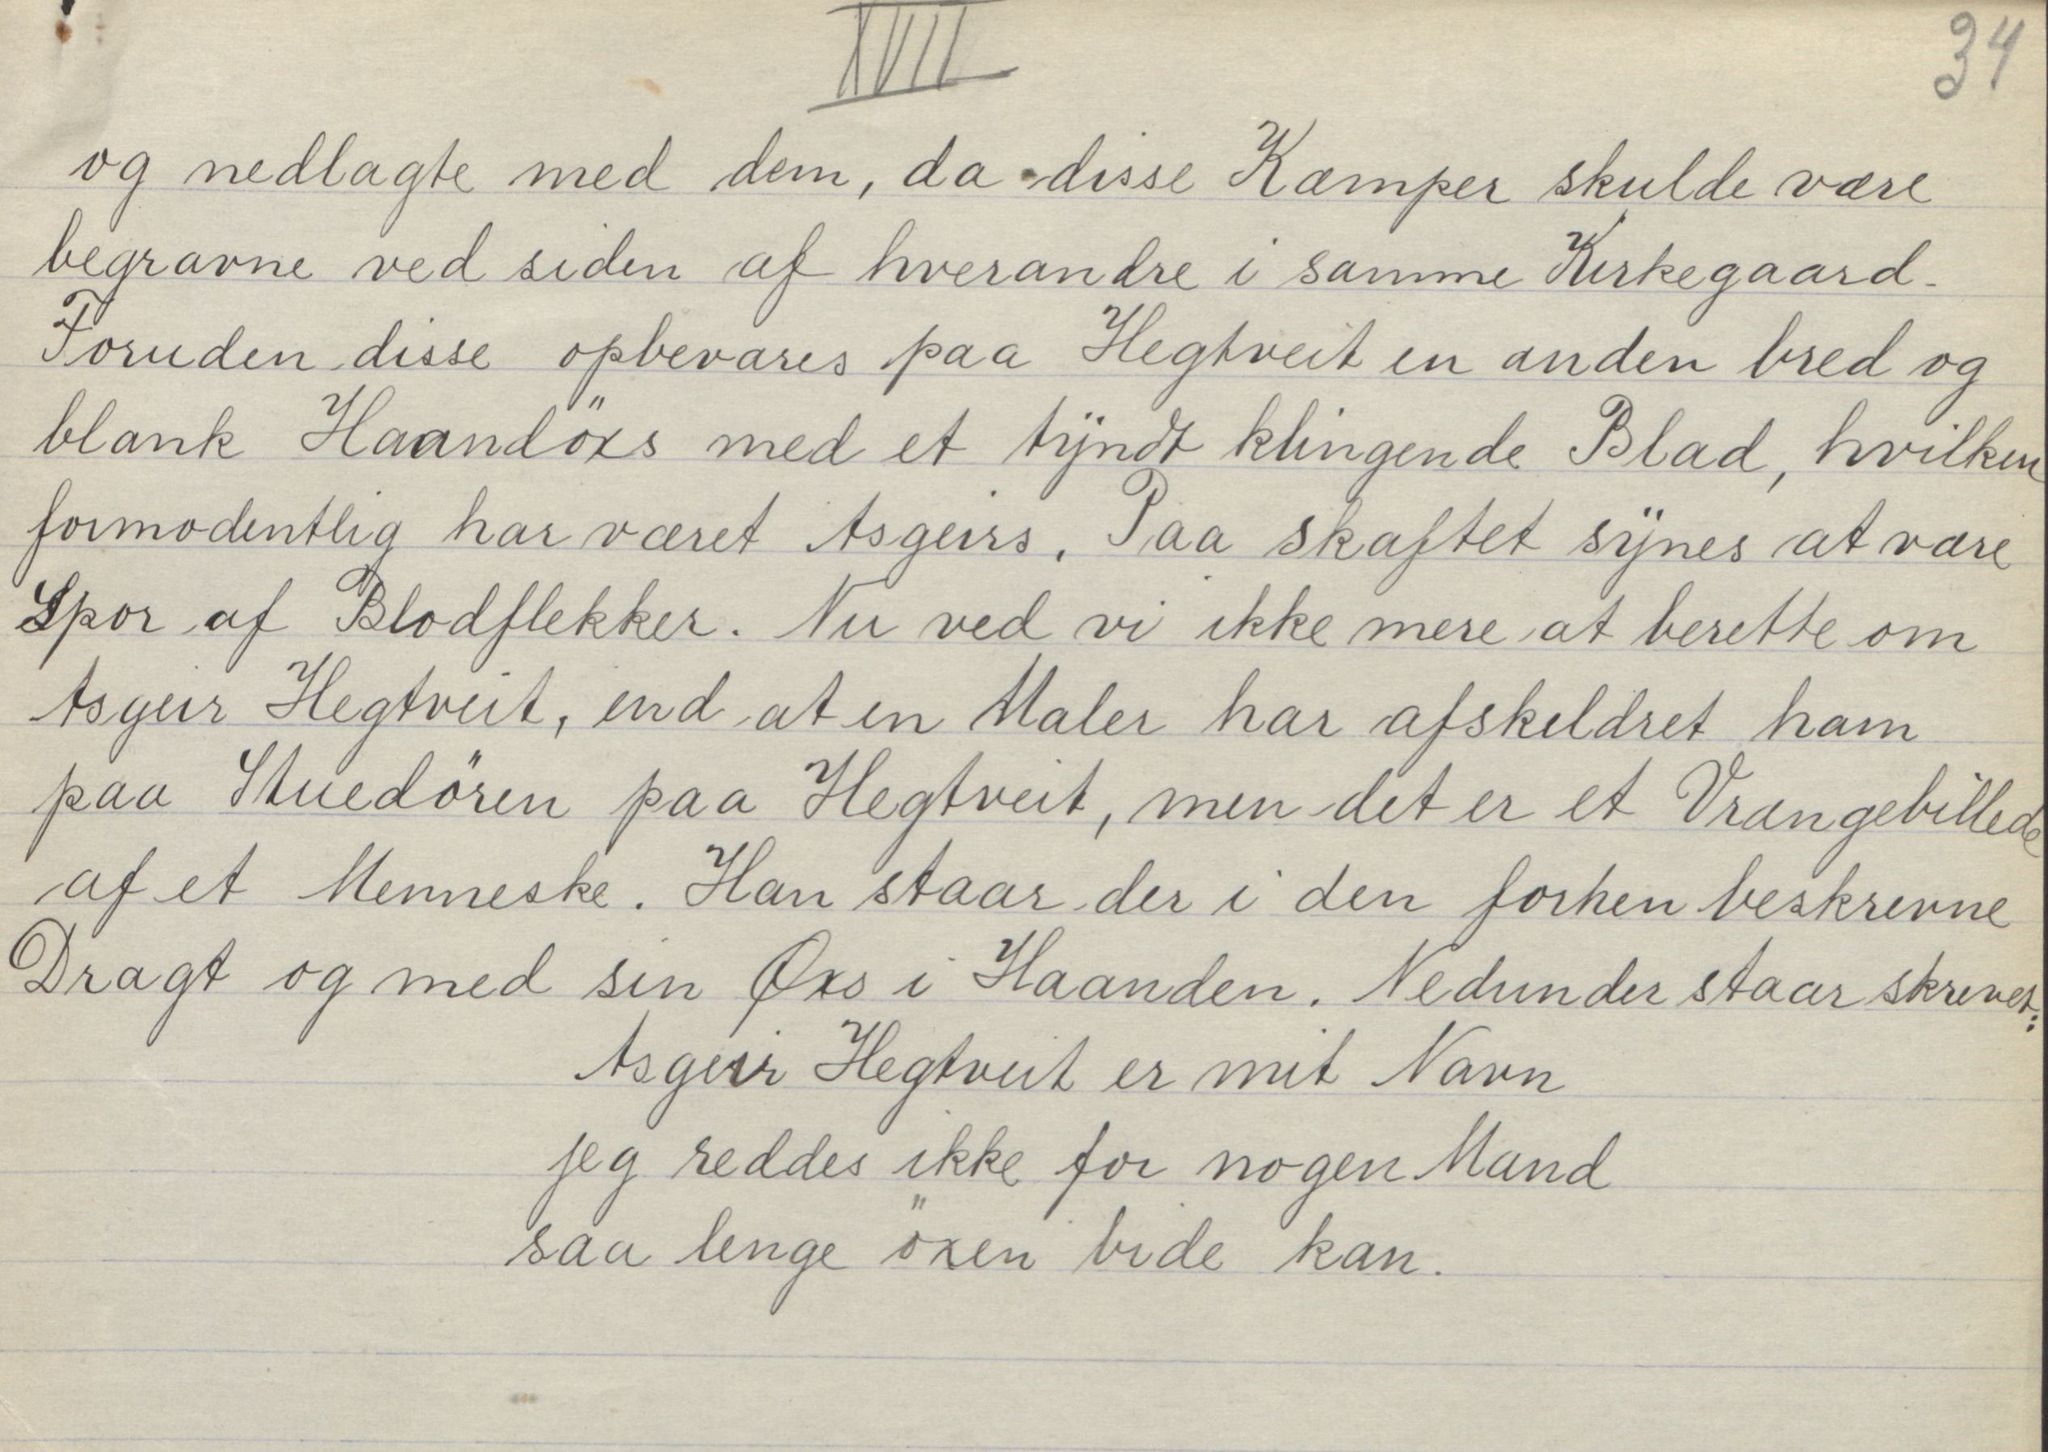 XVII
34
og nedlagte med dem, da disse Kæmper skulde være
begravne ved siden af hverandre i samme Kirkegaard.
Foruden disse opbevares paa Hegtveit en anden bred og
blank Haandöxs med et tÿndt klingende Blad, hvilken
formodentlig har været Asgeirs. Paa skaftet sÿnes at være
Spor af Blodflekker. Nu ved vi ikke mere at berette om
Asgeir Hegtveit, end at en Maler har afskildret ham
paa Stuedören paa Hegtveit, men det er et Vrængebillede
af et Menneske. Han staar der i den forhen beskrevne
Dragt og med sin Øxs i Haanden. Nedunder staar skrevet:
Asgeir Hegtveit er mit Navn
jeg reddes ikke for nogen Mand
saa lenge öxen bide kan.